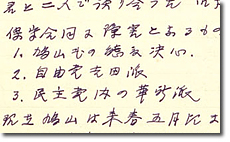 君と二人で語り合うた
保守合同の障害となるもの
1. 鳩山もの総裁決心.
2. 自由党吉田派
3. 民主党内の革新派
現在鳩山は来春五月に